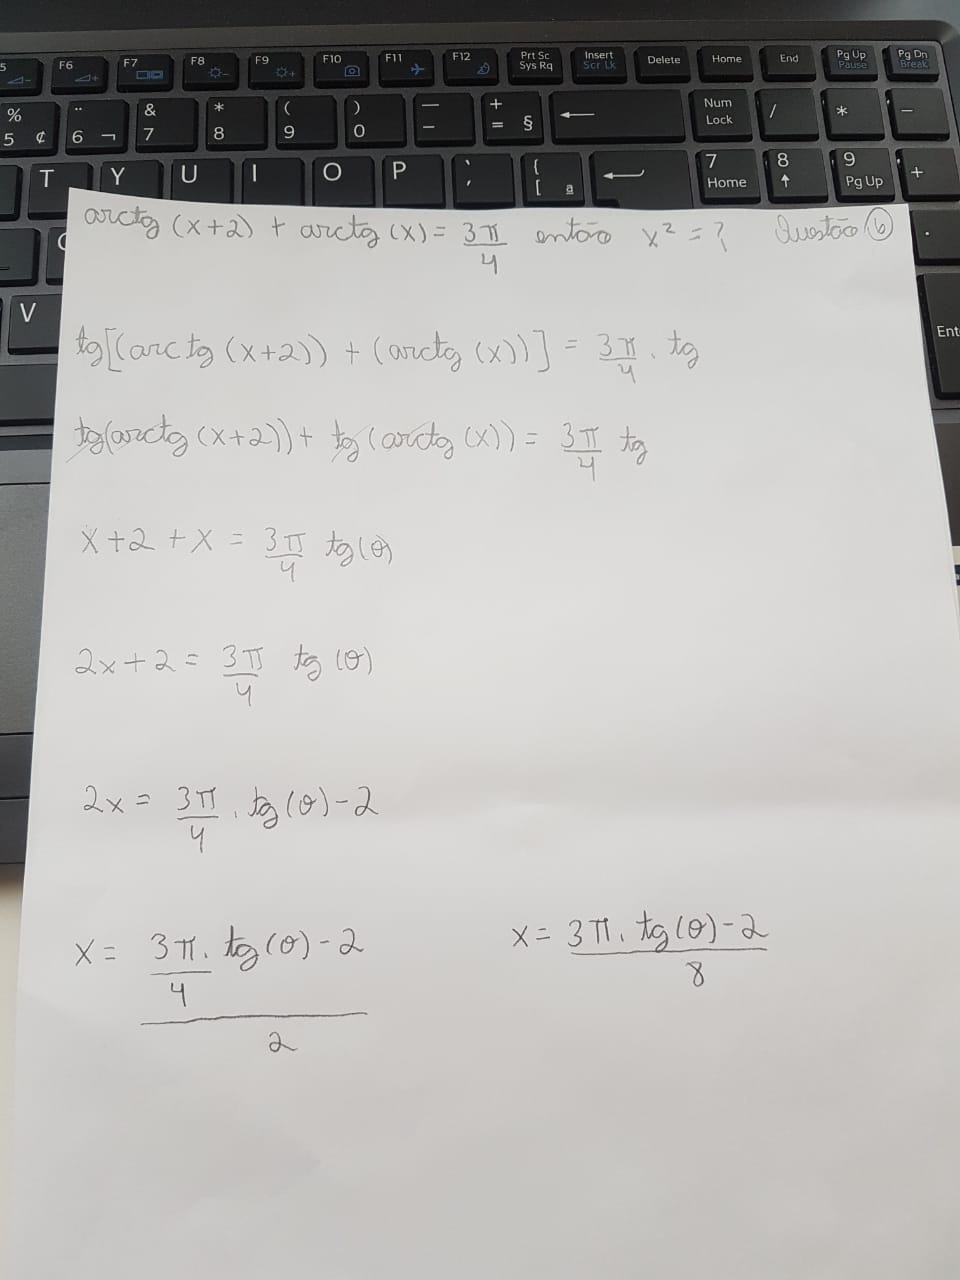 5 F6 F7 F8 F9 F10 F11 F12 Prt Sc Insert Delete Home End Pg Up Pg Dn
Sys Rq Scr Lk Pause Break
% ¨ & * ( ) — + Num / * −
5 ¢ 6 ¬ 7 8 9 0 − = § ← Lock
T Y U I O P ` ´ { [ ª 7 Home 8 ↑ 9 Pg Up +
V Ent
arctg (x+2) + arctg (x) = 3π/4 então x² = ? Questão 6
tg[(arctg (x+2)) + (arctg (x))] = 3π/4 . tg
tg(arctg (x+2)) + tg (arctg (x)) = 3π/4 tg
x+2 + x = 3π/4 tg(θ)
2x+2 = 3π/4 tg (θ)
2x = 3π/4 . tg(θ) - 2
x = 3π/4 . tg(θ) - 2 / 2 x = 3π. tg(θ) - 2 / 8